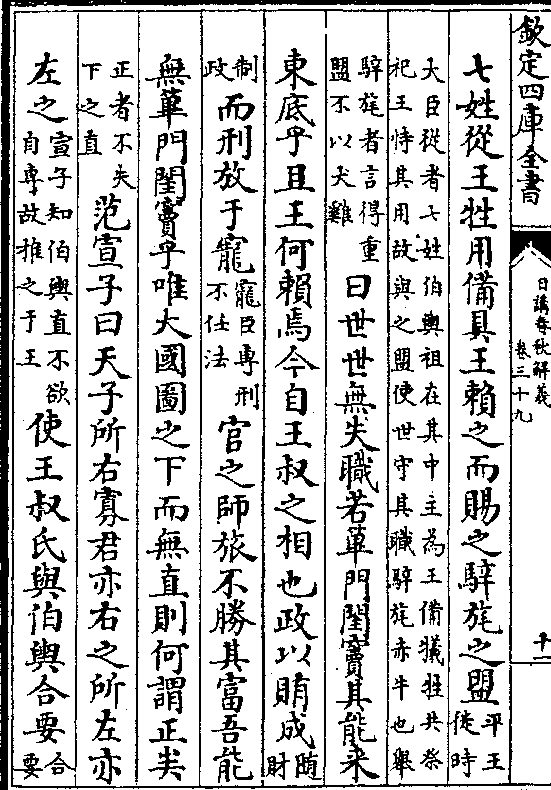 欽定四庫全書
日講春秋解義
卷三十九
十一
七姓從王牲用備具王賴之而賜之騂旄之盟平王
徙時
大臣從者七姓伯輿祖在其中主為王備犧牲共祭
祀王恃其用故與之盟使世守其職騂旄赤牛也舉
騂旄者言得重
盟不以犬雞
曰世世無失職若蓽門閨竇其能來
東底乎且王何賴焉今自王叔之相也政以賄成隨
財
制
政
而刑放于寵寵臣專刑
不任法
官之師旅不勝其富吾能
無蓽門閨竇乎唯大國圖之下而無直則何謂正矣
正者不失
下之直
范宣子曰天子所右寡君亦右之所左亦
左之宣子知伯輿直不欲
自專故推之于王
使王叔氏與伯輿合要合
要